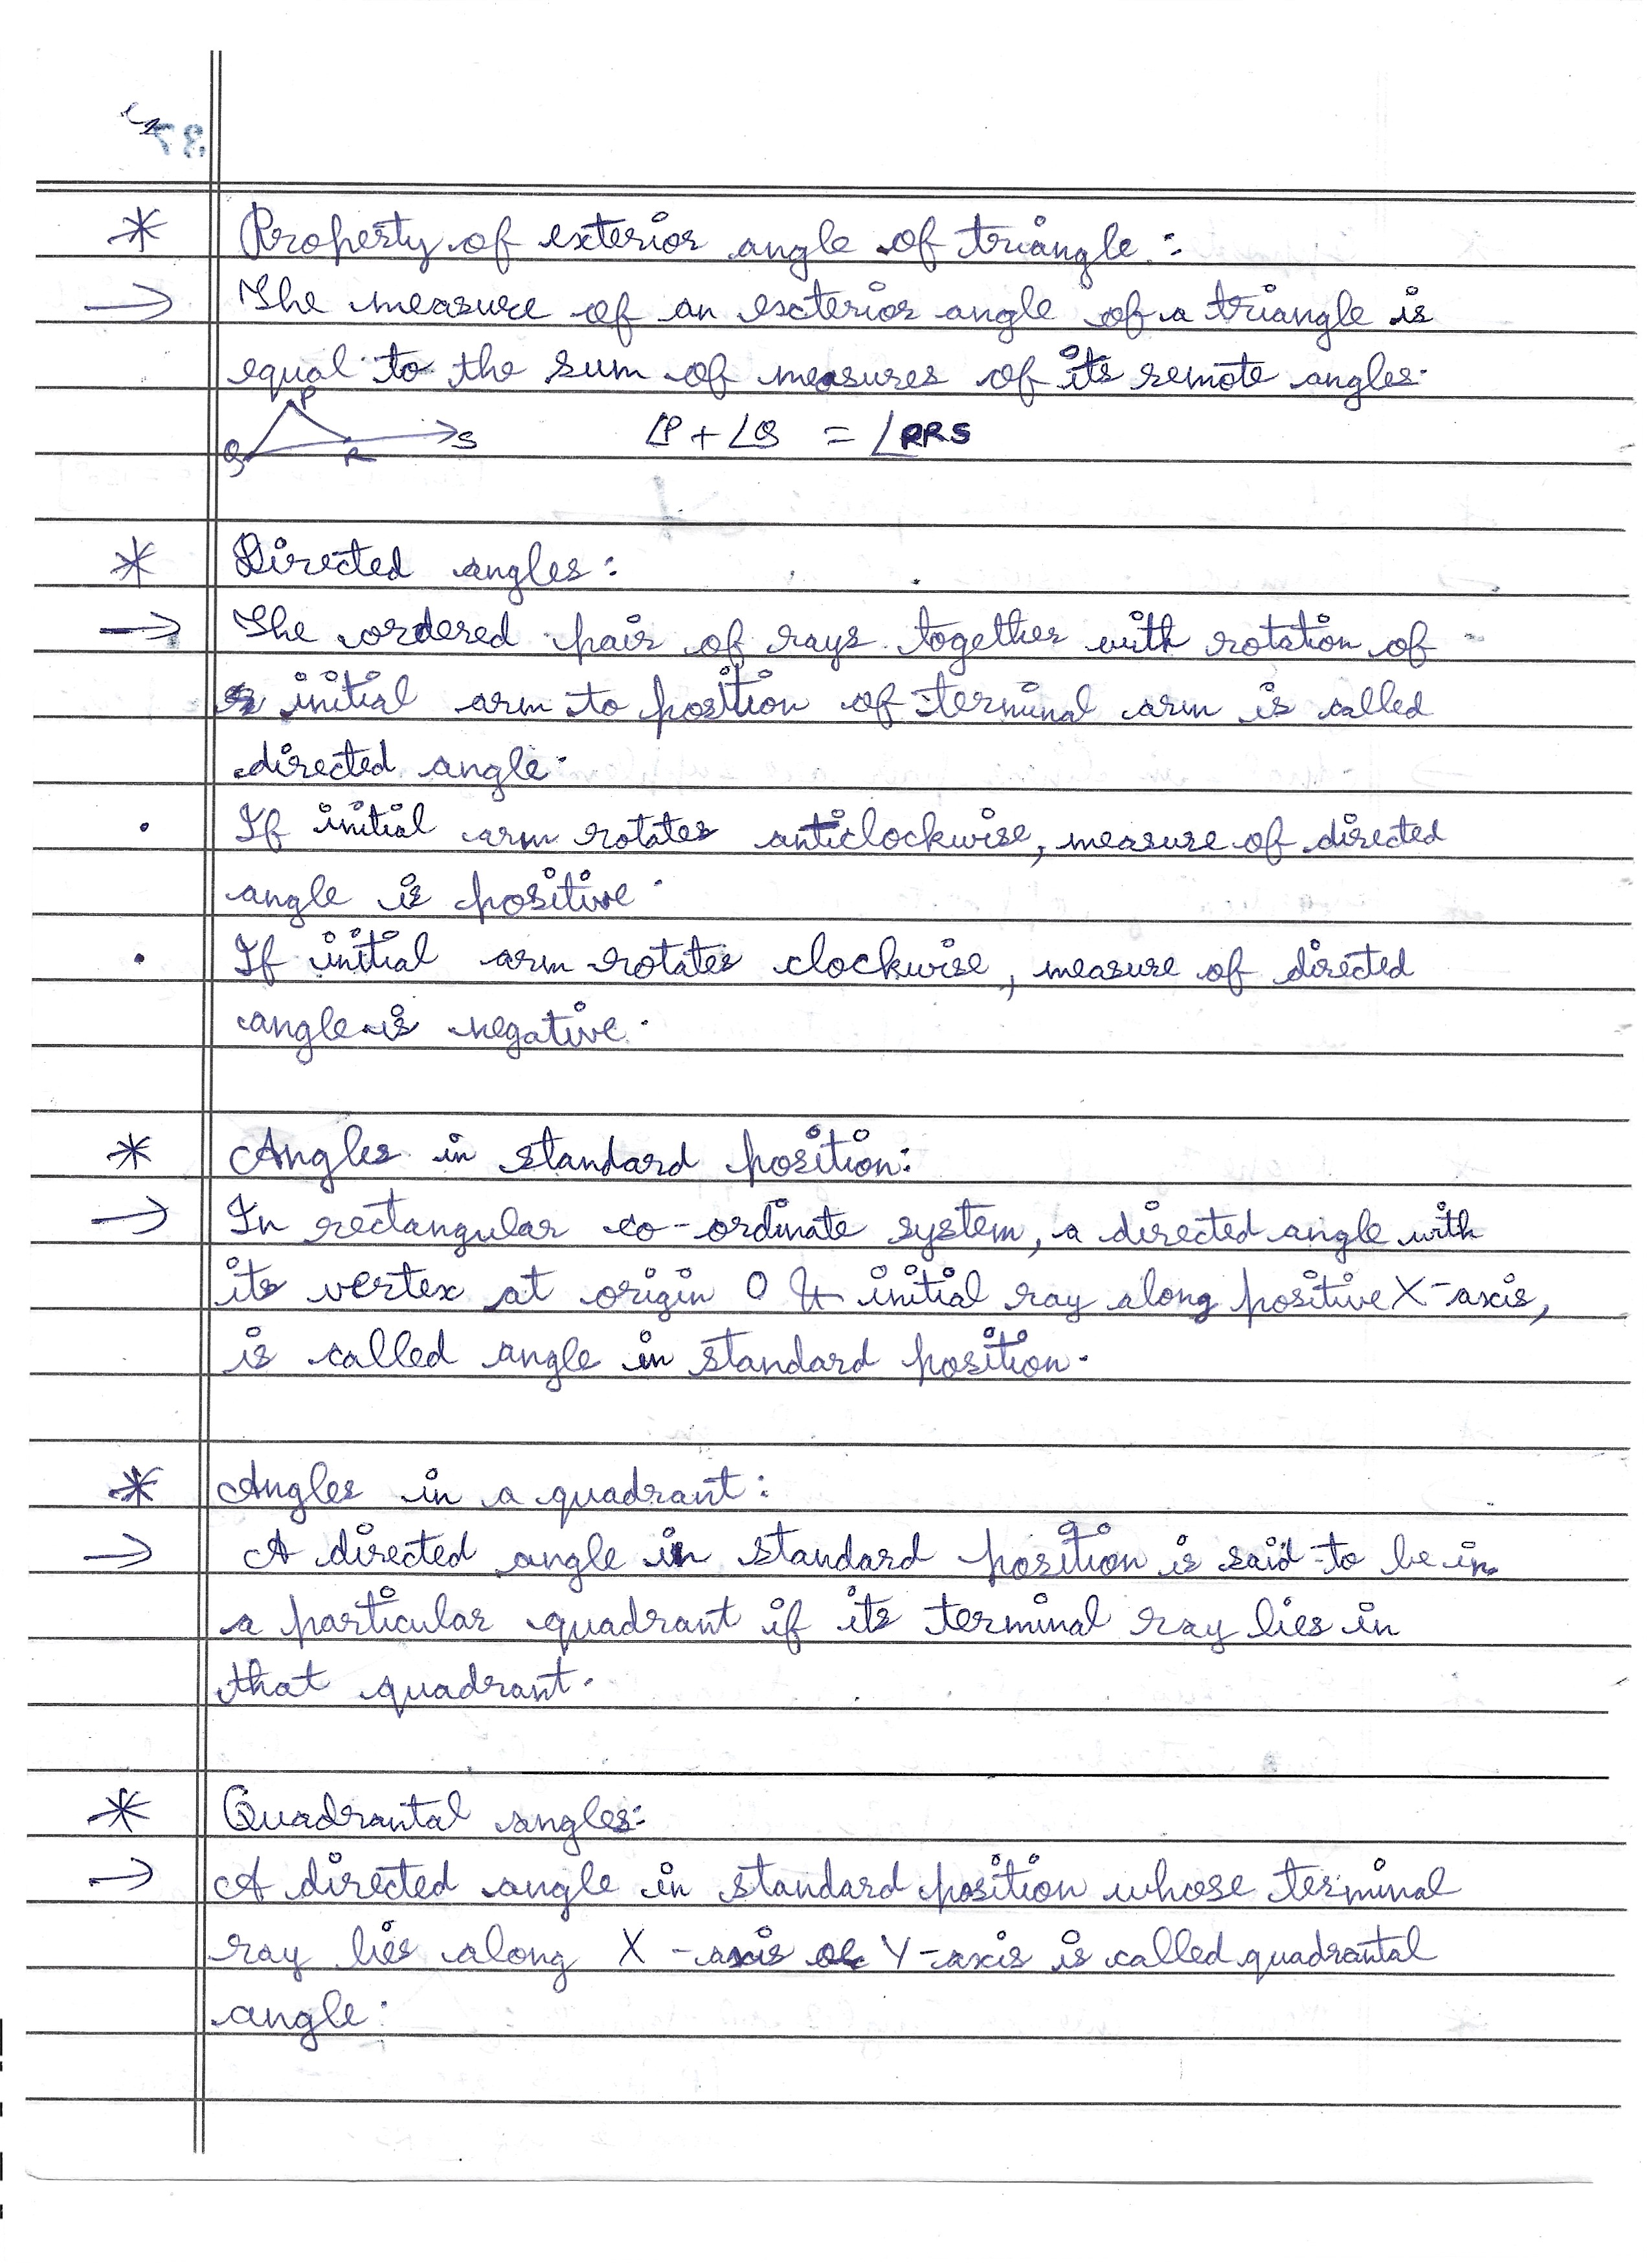 * Property of exterior angle of triangle :
→ The measure of an exterior angle of a triangle is
equal to the sum of measures of its remote angles.
P
Q R S ∠P + ∠Q = ∠PRS
* Directed angles :
→ The ordered pair of rays together with rotation of
initial arm to position of terminal arm is called
directed angle.
• If initial arm rotates anticlockwise, measure of directed
angle is positive.
• If initial arm rotates clockwise, measure of directed
angle is negative.
* Angles in standard position:
→ In rectangular co-ordinate system, a directed angle with
its vertex at origin O & initial ray along positive X-axis,
is called angle in standard position.
* Angles in a quadrant :
→ A directed angle in standard position is said to be in
a particular quadrant if its terminal ray lies in
that quadrant.
* Quadrantal angles:
→ A directed angle in standard position whose terminal
ray lies along X-axis or Y-axis is called quadrantal
angle.